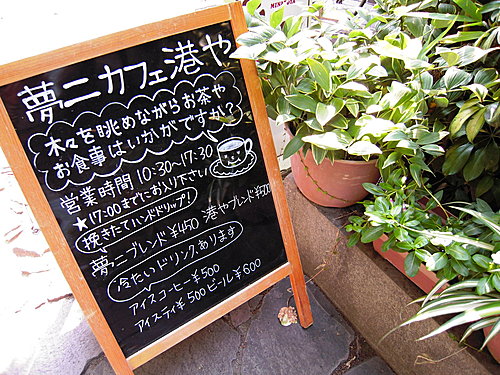 夢二カフェ港や
木々を眺めながらお茶や
お食事はいかがですか?
営業時間 10:30~17:30
★17:00までにお入り下さい
挽きたてハンドドリップ!
夢二ブレンド¥450 港やブレンド¥500
冷たいドリンクあります
アイスコーヒー¥500
アイスティ¥500 ビール¥600